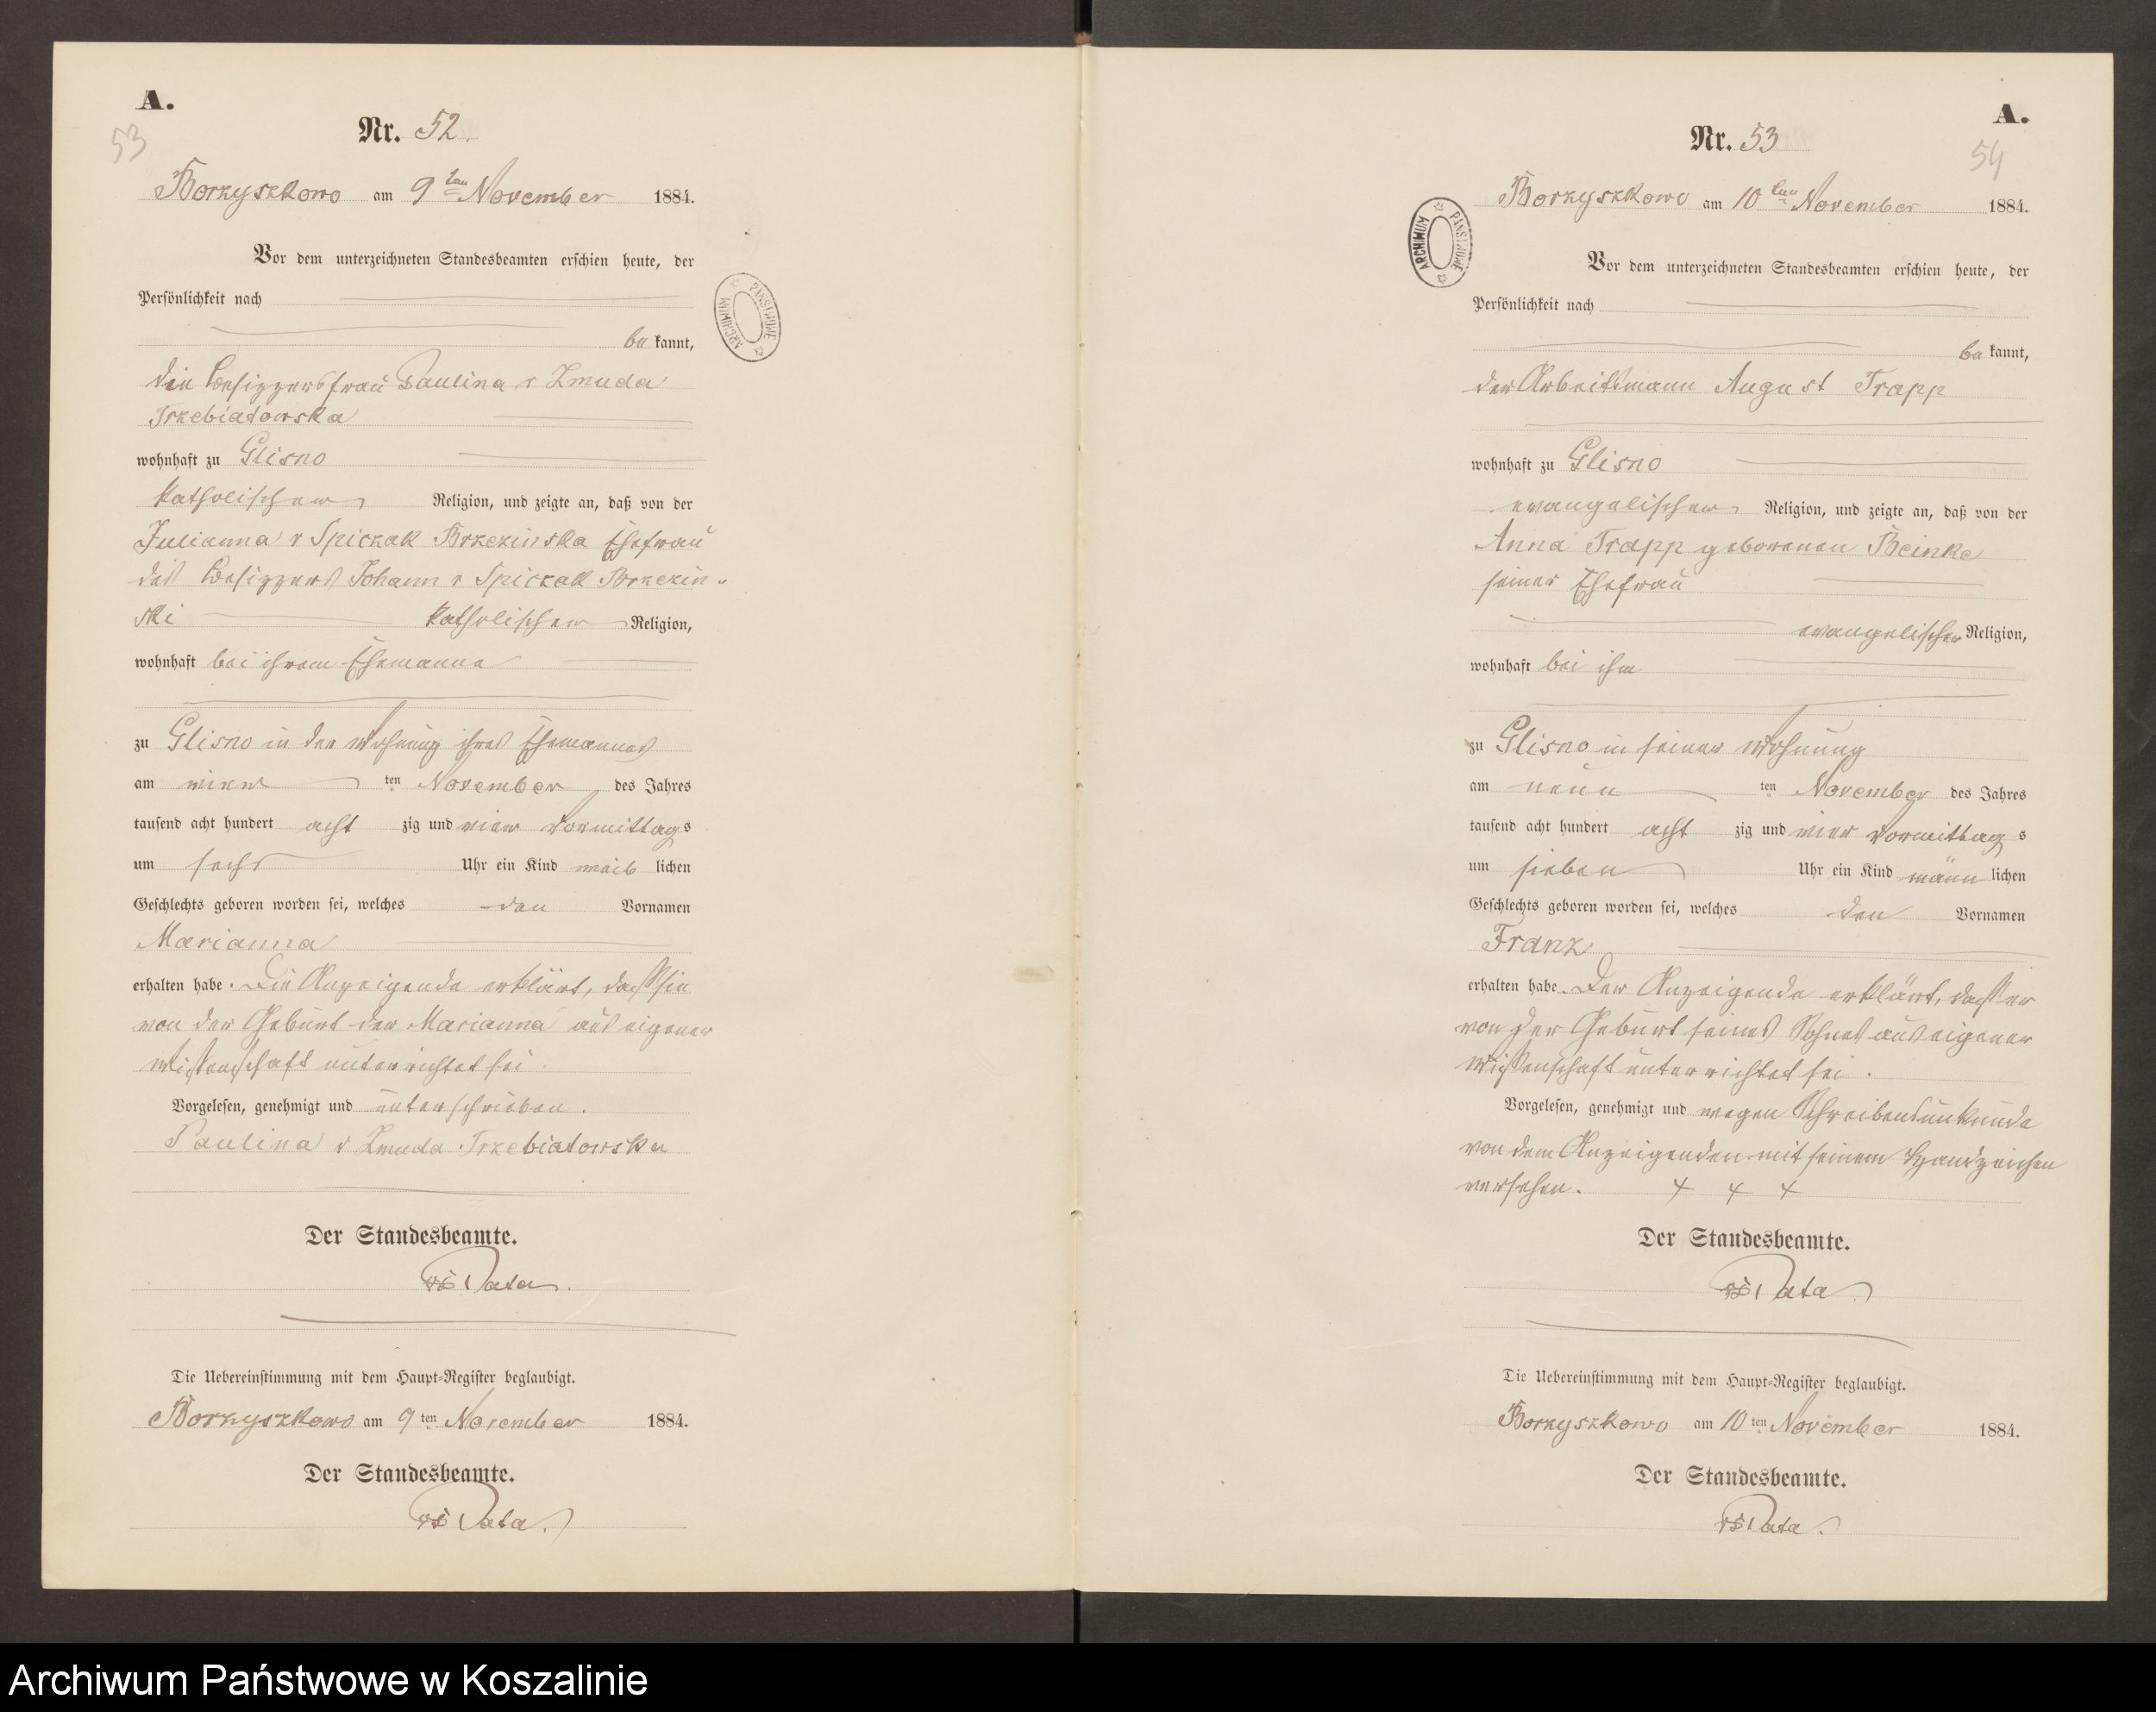 A.
53
Nr. 52.
Borzyszkowo am 9ten November 1884.
Vor dem unterzeichneten Standesbeamten erschien heute, der
Persönlichkeit nach
ARCHIWUM PAŃSTWOWE
be kannt,
die Besitzersfrau Paulina v Zmuda
Trzebiatowska
wohnhaft zu Glisno
katholischer Religion, und zeigte an, daß von der
Julianna v Spiczak Brzezinska Ehefrau
des Besitzers Johann v Spiczak Brzezin-
ski katholischer Religion,
wohnhaft bei ihrem Ehemanne
zu Glisno in der Wohnung ihres Ehemannes
am vier ten November des Jahres
tausend acht hundert acht zig und vier Vormittag s
um sechs Uhr ein Kind weib lichen
Geschlechts geboren worden sei, welches den Vornamen
Marianna
erhalten habe. Die Anzeigende erklärt, daß sie
von der Geburt der Marianna aus eigener
Wissenschaft unterrichtet sei.
Vorgelesen, genehmigt und unterschrieben.
Paulina v Zmuda Trzebiatowska
Der Standesbeamte.
Data.
Die Uebereinstimmung mit dem Haupt-Register beglaubigt.
Borzyszkowo am 9ten November 1884.
Der Standesbeamte.
Data.
A.
Nr. 53
54
Borzyszkowo am 10ten November 1884.
ARCHIWUM PAŃSTWOWE
Vor dem unterzeichneten Standesbeamten erschien heute, der
Persönlichkeit nach
be kannt,
der Arbeitsmann August Trapp
wohnhaft zu Glisno
evangelischer Religion, und zeigte an, daß von der
Anna Trapp geborenen Beinke
seiner Ehefrau
evangelischer Religion,
wohnhaft bei ihm
zu Glisno in seiner Wohnung
am neun ten November des Jahres
tausend acht hundert acht zig und vier Vormittag s
um sieben Uhr ein Kind männ lichen
Geschlechts geboren worden sei, welches den Vornamen
Franz
erhalten habe. Der Anzeigende erklärt, daß er
von der Geburt seines Sohnes aus eigener
Wissenschaft unterrichtet sei.
Vorgelesen, genehmigt und wegen Schreibensunkunde
von dem Anzeigenden mit seinem Handzeichen
versehen. + + +
Der Standesbeamte.
Data.
Die Uebereinstimmung mit dem Haupt-Register beglaubigt.
Borzyszkowo am 10ten November 1884.
Der Standesbeamte.
Data.
Archiwum Państwowe w Koszalinie